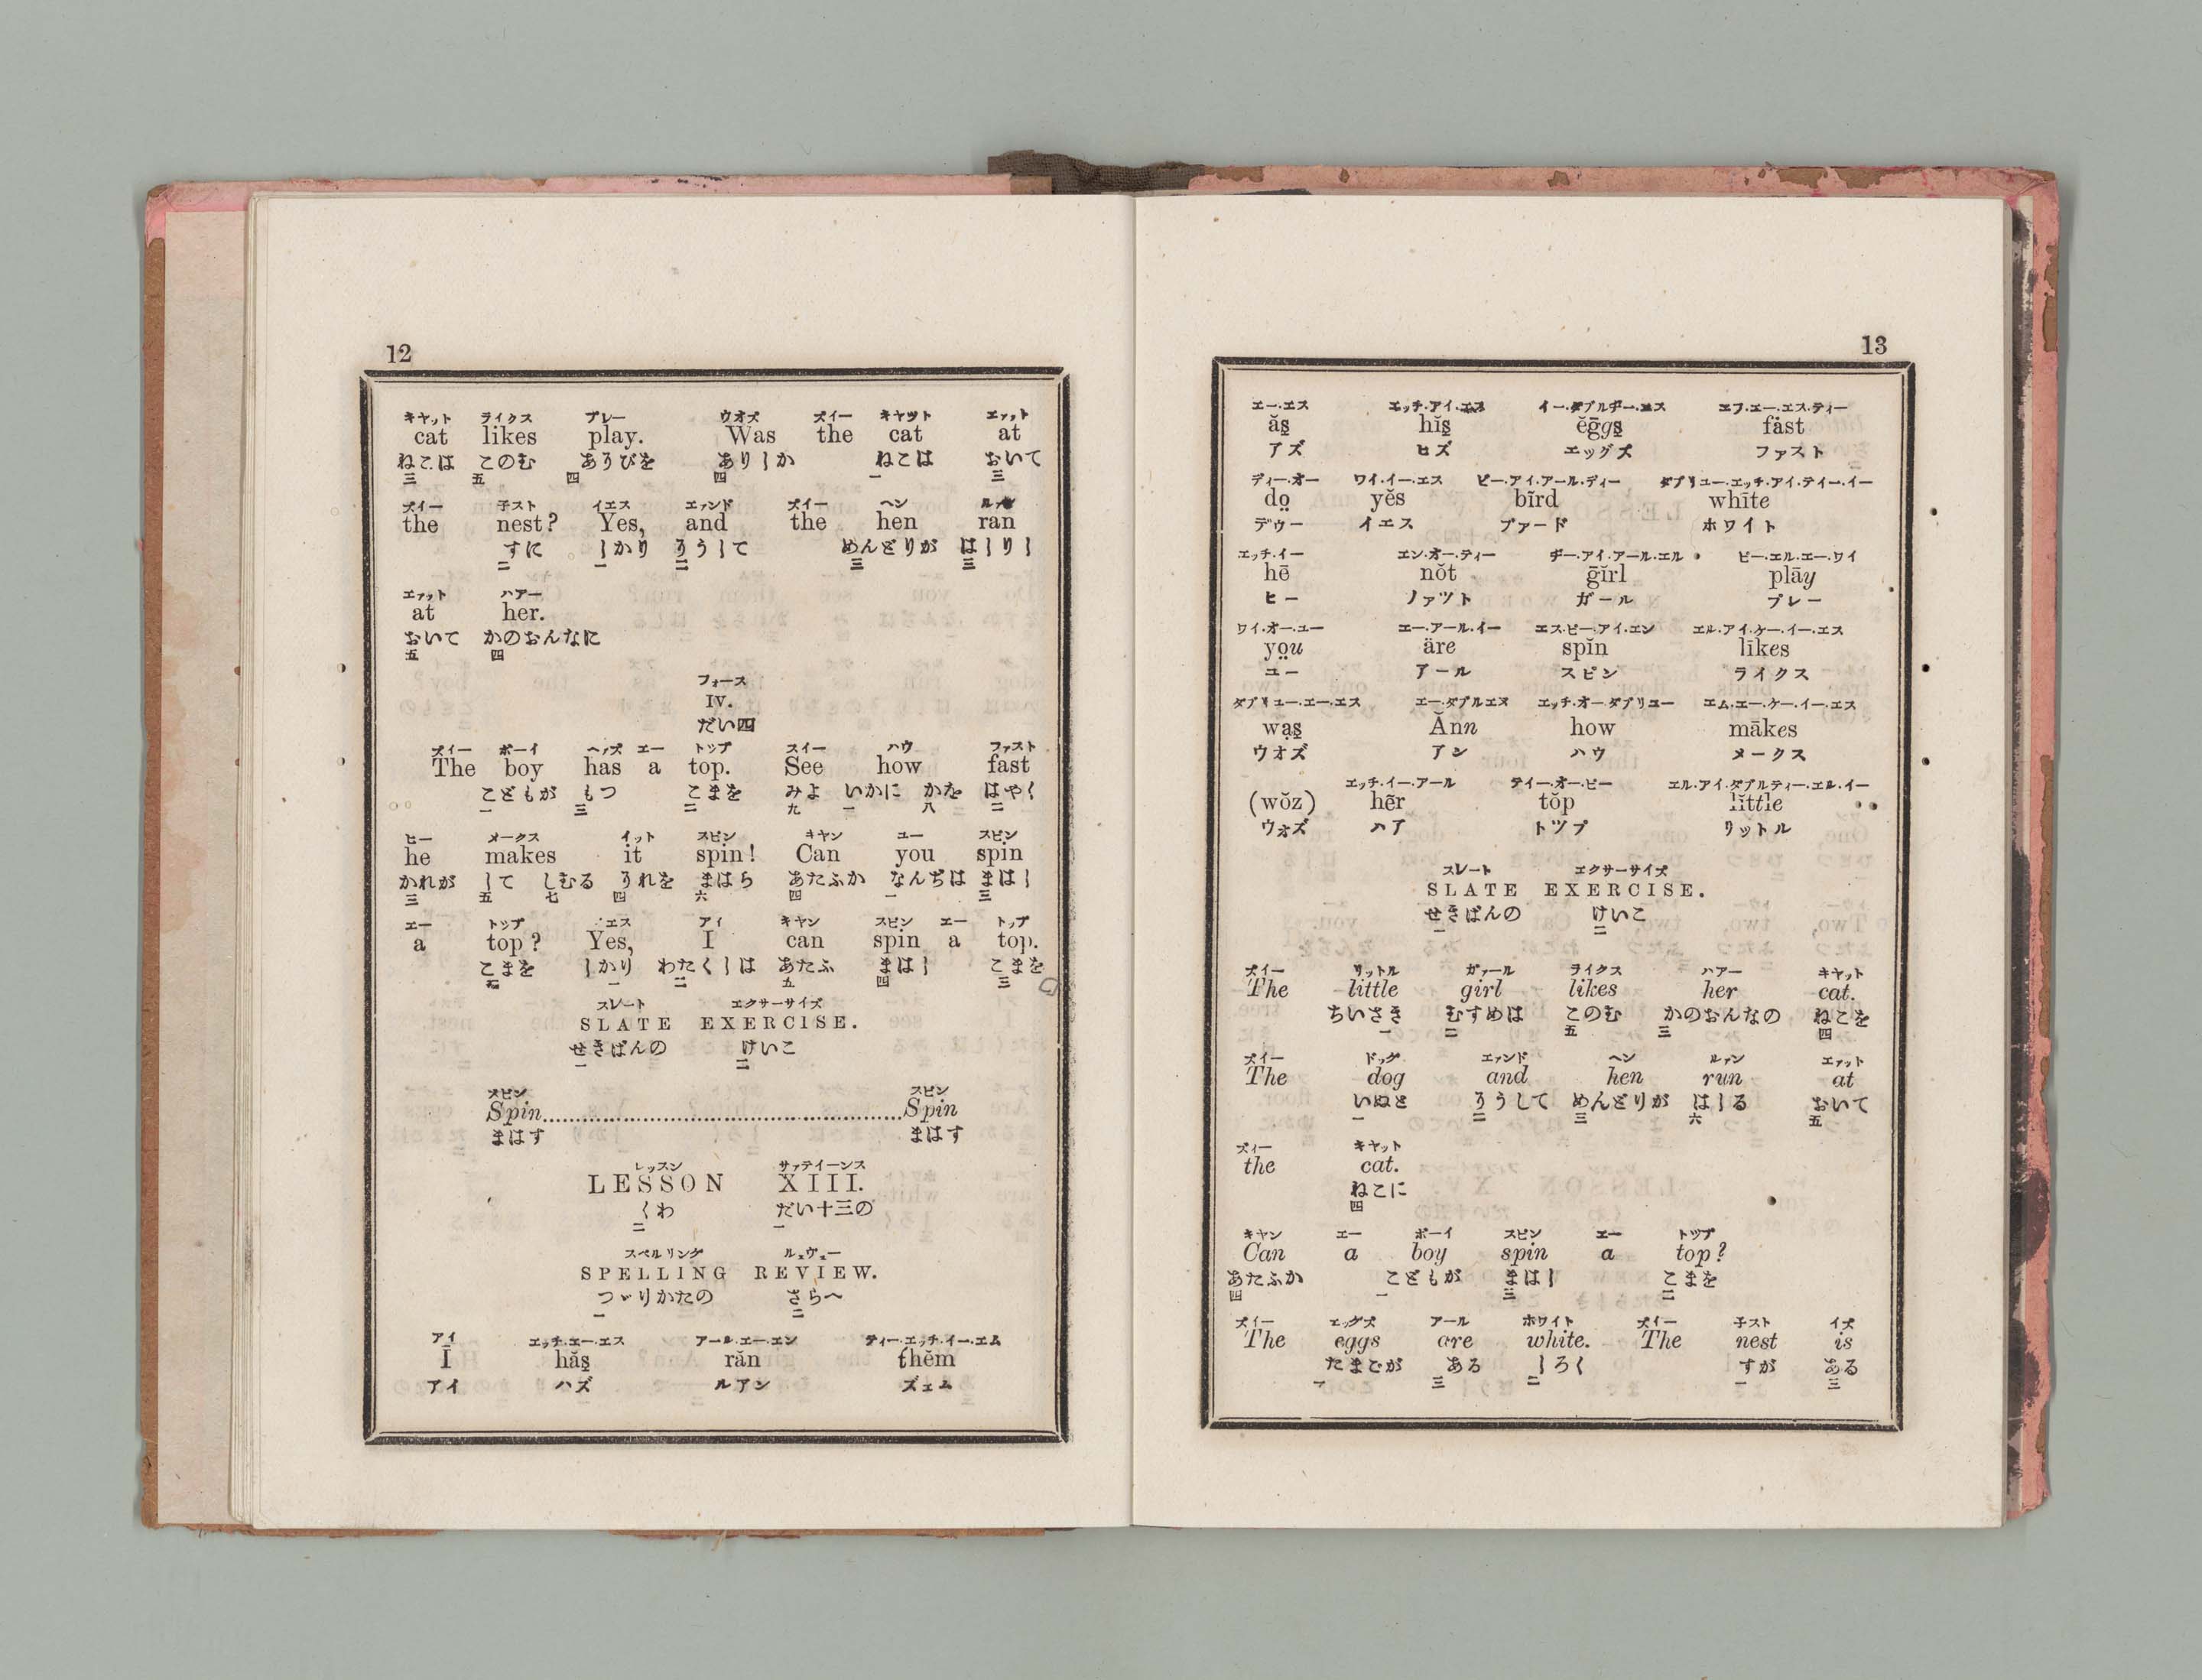 12
キャット ライクス プレー ウオズ ズイー キャット エァット
cat likes play. Was the cat at
ねこは このむ あそびを ありしか ねこは おいて
三 五 四 四 一 三
ズイー 子スト イエス エァンド ズイー ヘン ルァン
the nest? Yes, and the hen ran
すに しかり そうして めんどりが はしりし
二 一 二 三 三
エァット ハアー
at her.
おいて かのおんなに
五 四
フォース
IV.
だい四
ズイー ボーイ ヘァズ エー トップ スイー ハウ ファスト
The boy has a top. See how fast
こどもが もつ こまを みよ いかに かを はやく
一 三 二 九 一 八 二
ヒー メークス イット スピン キヤン ユー スピン
he makes it spin! Can you spin
かれが して しむる それを まはら あたふか なんぢは まはし
三 五 七 四 六 四 一 三
エー トップ イエス アイ キヤン スピン エー トップ
a top? Yes, I can spin a top.
こまを しかり わたくしは あたふ まはし こまを
二 一 二 五 四 三
スレート エクサーサイズ
SLATE EXERCISE.
せきばんの けいこ
一 二
スピン スピン
Spin....................Spin
まはす まはす
レッスン サァテイーンス
LESSON XIII.
くわ だい十三の
二 一
スペルリング ルェヴュー
SPELLING REVIEW.
つゞりかたの さらへ
一 二
アイ エッチ.エー.エス アール.エー.エン ティー.エッチ.イー.エム
Ī hăs̱ răn thĕm
アイ ハズ ルアン ズェム
13
エー.エス エッチ.アイ.エス イー.ダブルヂー.エス エフ.エー.エス.ティー
ăs̱ hĭs̱ ĕḡgs̱ fȧst
アズ ヒズ エッグズ ファスト
ディー.オー ワイ.イー.エス ビー.アイ.アール.ディー ダブリュー.エッチ.アイ.テイー.イー
do̤ yĕs bĩrd whīte
デゥー イエス ブァード ホワイト
エッチ.イー エン.オー.ティー ヂー.アイ.アール.エル ピー.エル.エー.ワイ
hē nŏt ḡĩrl plāy
ヒー ノァツト ガール プレー
ワイ.オー.ユー エー.アール.イー エス.ピー.アイ.エン エル.アイ.ケー.イー.エス
yo̤u äre spĭn līkes
ユー アール スピン ライクス
ダブリュー.エー.エス エー.ダブルエヌ エッチ.オー.ダブリユー エム.エー.ケー.イー.エス
wạs̱ Ănn how mākes
ウオズ アン ハウ メークス
エッチ.イー.アール テイー.オー.ピー エル.アイ.ダブルティー.エル.イー
(wŏz) hẽr tŏp lĭttle
ウォズ ハア トツプ リットル
スレート エクサーサイズ
SLATE EXERCISE.
せきばんの けいこ
一 二
ズイー リットル ガァール ライクス ハアー キャット
The little girl likes her cat.
ちいさき むすめは このむ かのおんなの ねこを
一 二 五 三 四
ズイー ドッグ エァンド ヘン ルァン エァット
The dog and hen run at
いぬと そうして めんどりが はしる おいて
一 二 三 六 五
ズィー キャット
the cat.
ねこに
四
キヤン エー ボーイ スピン エー トップ
Can a boy spin a top?
あたふか こどもが まはし こまを
四 一 三 二
ズイー エッグズ アール ホワイト ズイー 子スト イズ
The eggs are white. The nest is
たまごが ある しろく すが ある
一 三 二 一 三